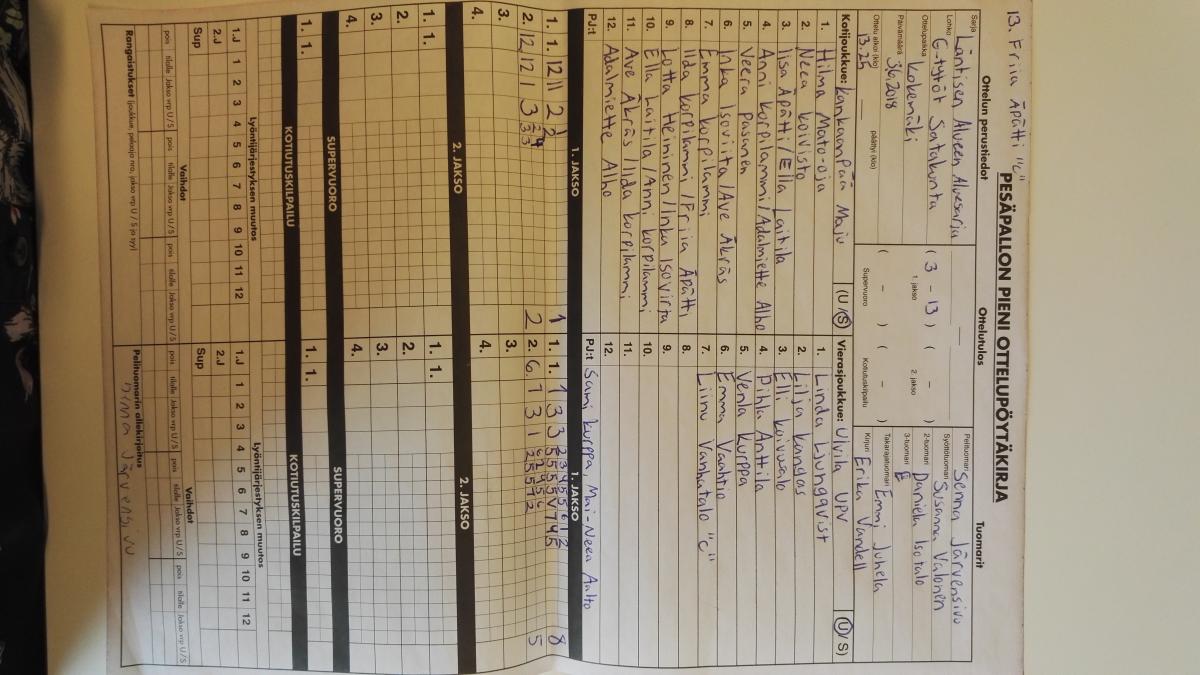 13. Friia Äpätti "C"
PESÄPALLON PIENI OTTELUPÖYTÄKIRJA
Ottelun perustiedot
Sarja
Läntisen Alueen Aluesarja
Lohko
C-tytöt Satakunta
Ottelupaikka
Kokemäki
Päivämäärä
3.6.2018
Ottelu alkoi (klo)
13.25
päättyi (klo)
Ottelutulos
( 3 - 13 ) ( - )
1. jakso
2. jakso
( - ) ( - )
Supervuoro
Kotiutuskilpailu
Tuomarit
Pelituomari
Senna Järvensivu
Syöttötuomari
Susanna Valonen
2-tuomari
Daniela Isotalo
3-tuomari
Takarajatuomari
Emmi Juhela
Kirjuri
Erika Vandell
Kotijoukkue: Kankaanpää Maju (U/S)
1. Hilma Mato-oja
2. Neea Koivisto
3. Iisa Äpätti / Ella Laitila
4. Anni Korpilammi / Adalmiette Alho
5. Veera Pasanen
6. Inka Isoviita / Ave Äkräs
7. Emma Korpilammi
8. Iida Korpilammi / Friia Äpätti
9. Lotta Heininen / Inka Isoviita
10. Ella Laitila / Anni Korpilammi
11. Ave Äkräs / Iida Korpilammi
12. Adalmiette Alho
PJ:t
Vierasjoukkue: Ulvila UPV (U/S)
1. Linda Ljungqvist
2. Lilja Kangas
3. Elli Koivusalo
4. Pihla Anttila
5. Venla Kurppa
6. Emma Vaahtio
7. Liinu Vanhatalo "C"
8.
9.
10.
11.
12.
PJ:t Sami Kurppa, Mai-Neea Aalto
1. JAKSO
1. 1. 12 11 2 1
2. 12 12 1 3 2
3.
4.
1. JAKSO
1. 1. 1 3 3 8
2. 6. 7 3 1 5
3.
4.
2. JAKSO
1. 1.
2.
3.
4.
2. JAKSO
1. 1.
2.
3.
4.
SUPERVUORO
1. 1.
SUPERVUORO
1. 1.
KOTIUTUSKILPAILU
KOTIUTUSKILPAILU
Lyöntijärjestyksen muutos
1.J 1 2 3 4 5 6 7 8 9 10 11 12
2.J
Sup
Lyöntijärjestyksen muutos
1.J 1 2 3 4 5 6 7 8 9 10 11 12
2.J
Sup
Vaihdot
pois tilalle Jakso vrp U / S pois tilalle Jakso vrp U / S pois tilalle Jakso vrp U / S
Vaihdot
pois tilalle Jakso vrp U / S pois tilalle Jakso vrp U / S pois tilalle Jakso vrp U / S
Rangaistukset (joukkue, pelaaja nro, jakso vrp U / S ja syy)
Pelituomarin allekirjoitus